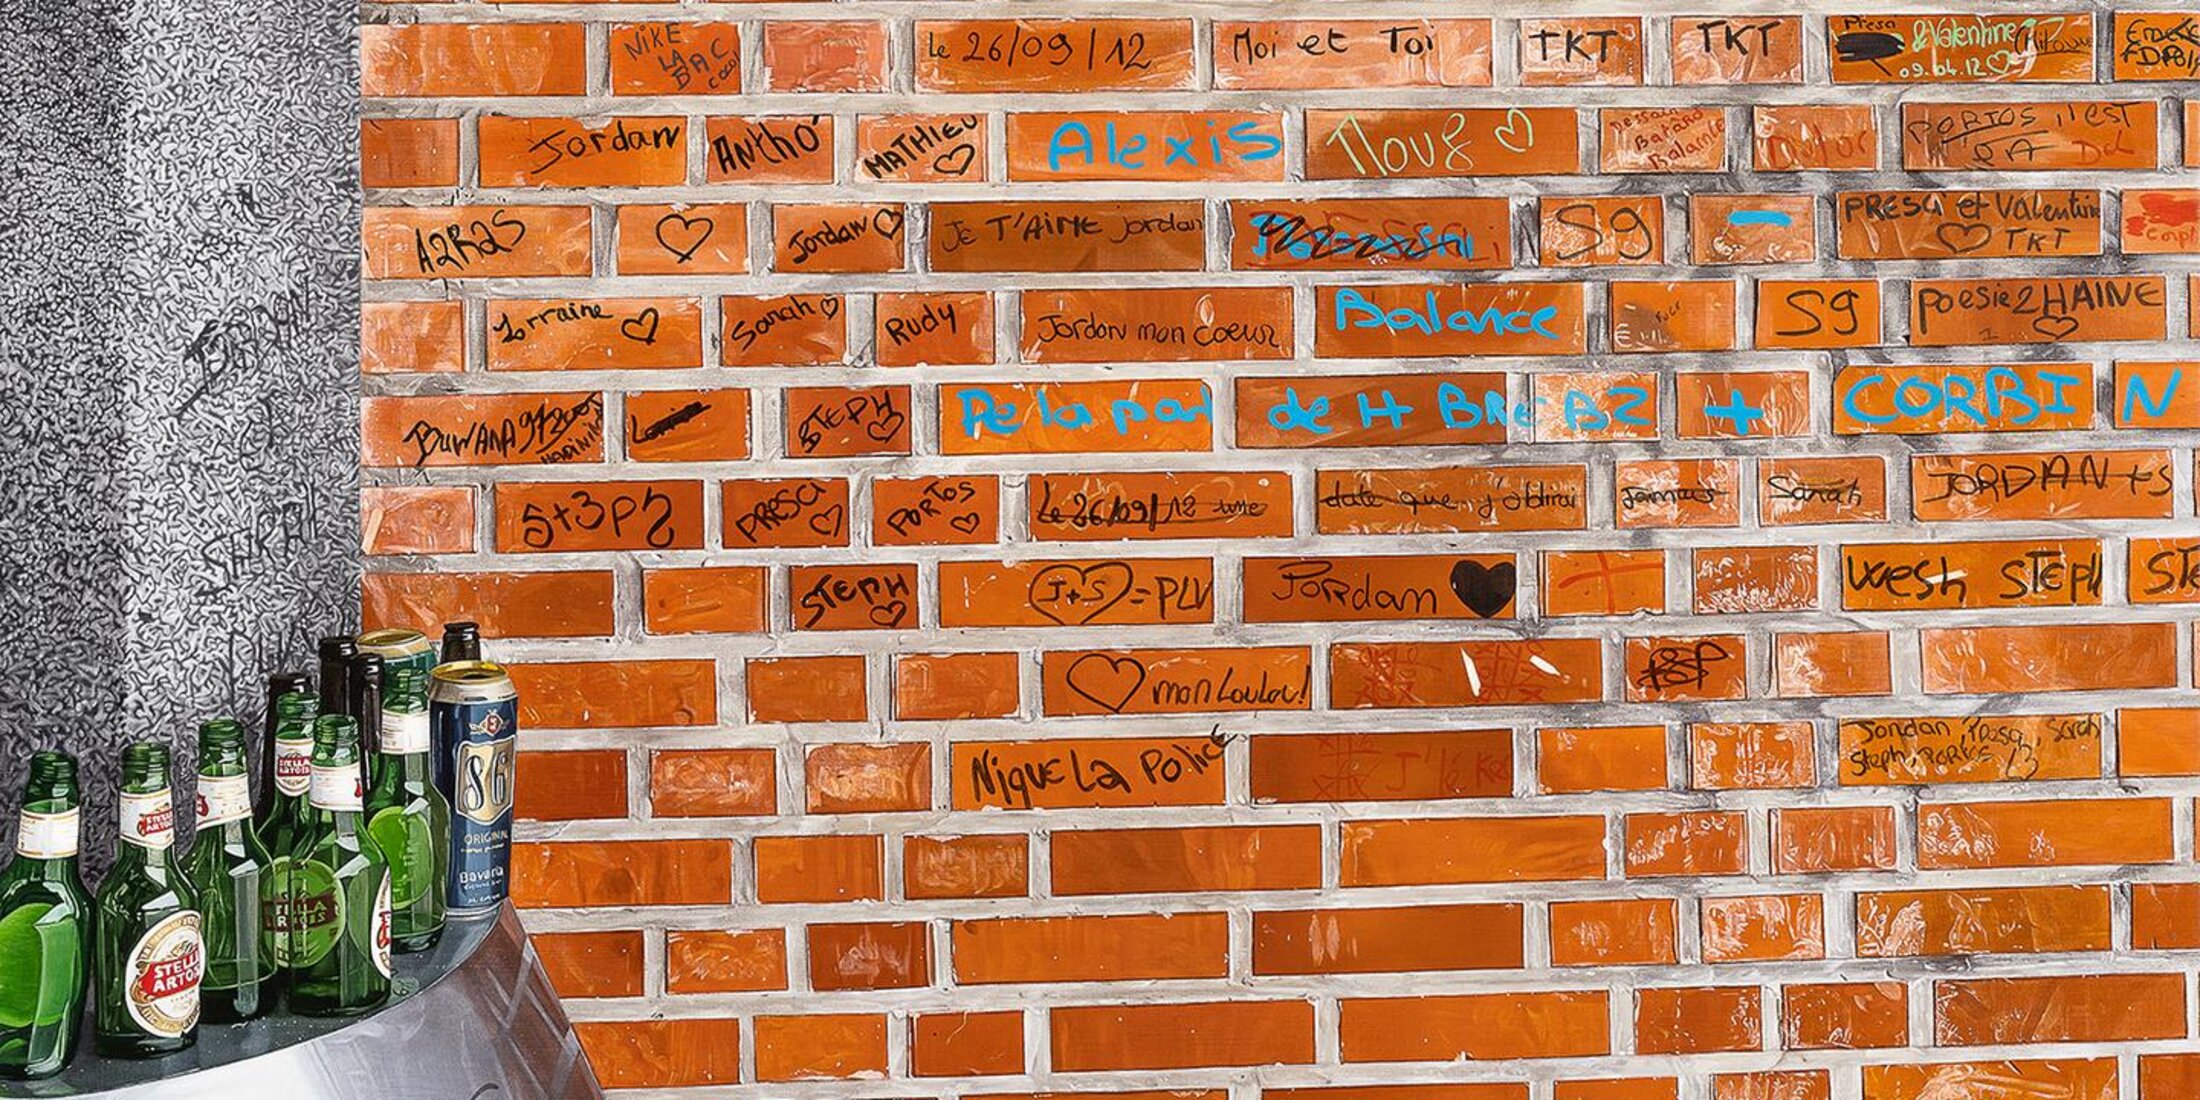 NIKE LA BAC
Le 26/09/12
Moi et Toi
TKT
TKT
Presa
& Valentine
09.04.12
Jordan
Antho
MATHIEU
Alexis
PORTOS il est
A2R2S
Jordan
Je T'AiME jordan
S9
PRESCI et Valentine
TKT
Lorraine
Sarah
Rudy
Jordan mon Coeur
Balance
S9
Poesie2HAINE
BUWANA
STEPH
De la part de H BReBZ + CORBIN
S+3P2
PRESCI
PORTOS
Le 26/09/12 une date que j'oblirai Jaimais Sarah
JORDAN + S
STEPH
J+S = PLV
Jordan
Wesh STEPH
mon Loulou!
Nique La Police
Jordan, Presci, Sarah
Steph, PORTOS
STELLA ARTOIS
STELLA ARTOIS
STELLA ARTOIS
STELLA ARTOIS
86
ORIGINAL
Bavaria